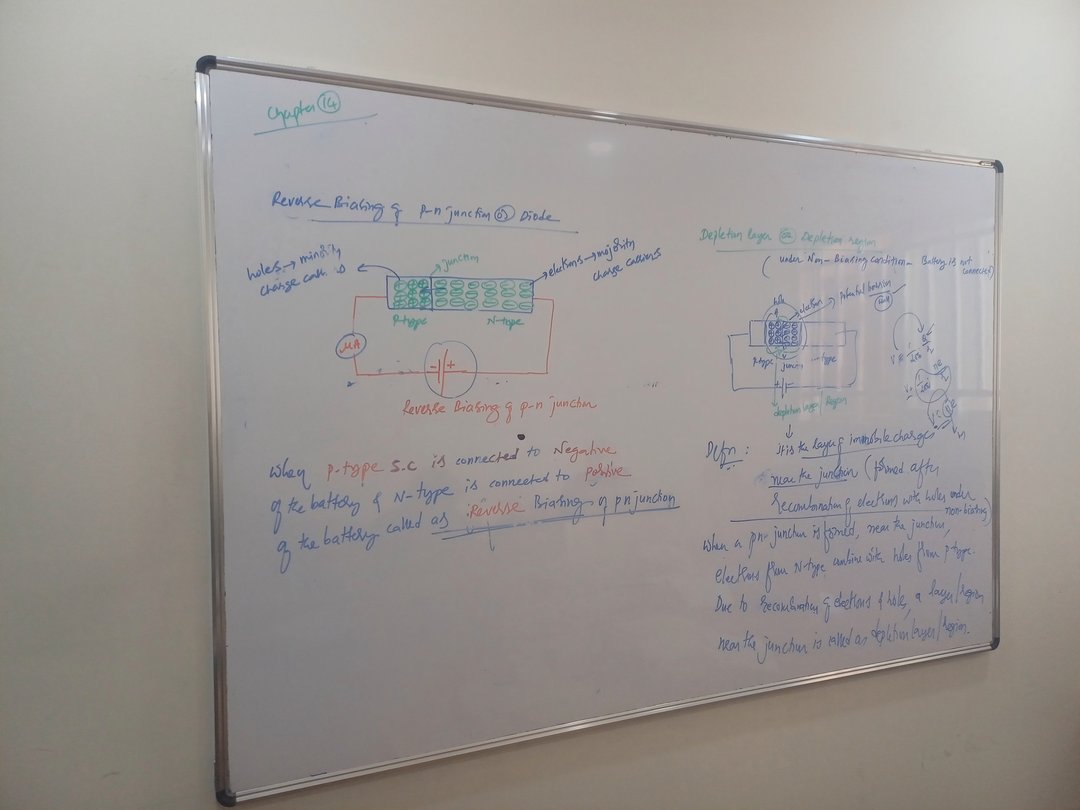 Chapter 14
Reverse Biasing of p-n junction or Diode
holes → minority
charge
junction
electrons → majority
charge carriers
P-type
N-type
μA
- +
Reverse Biasing of p-n junction
When p-type S.C is connected to Negative
of the battery & N-type is connected to Positive
of the battery called as Reverse Biasing of pn junction
Depletion layer or Depletion region
(under Non-Biasing Condition - Battery is not
connected)
hole
electron
potential barrier
P-type
junction
n-type
+ -
depletion layer/Region
Defn: it is the layer of immobile charges
near the junction (formed after
recombination of electrons with holes under
non-biasing)
When a pn-junction is formed, near the junction,
electrons from N-type combine with holes from p-type.
Due to recombination of electrons & hole, a layer/region
near the junction is called as depletion layer/region.